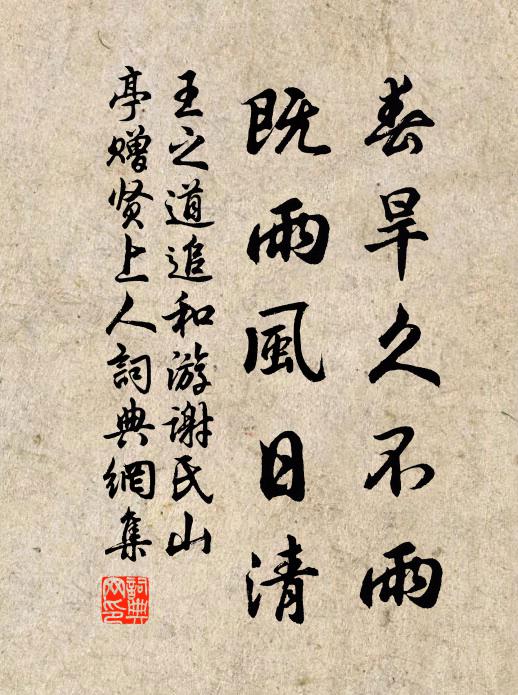 春旱久不雨
既雨風日清
王之道追和游谢氏山
亭赠贤上人詞典網集
詞典
网印